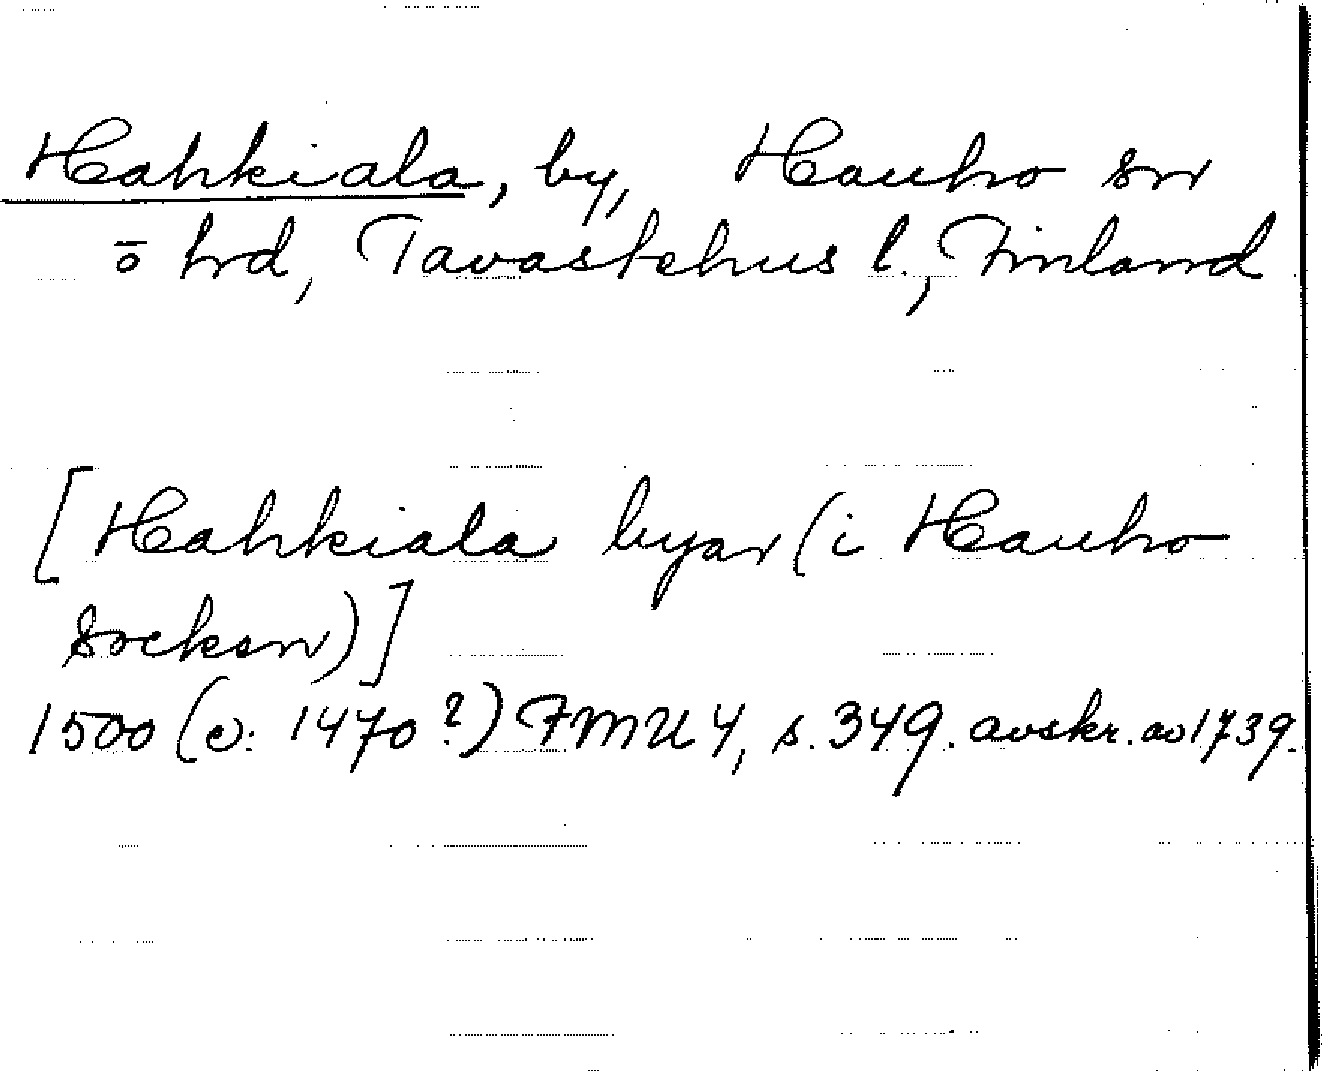 Hahkiala, by, Hauho sn
o hrd, Tavastehus l., Finland
[Hahkiala byar (i Hauho
socken)]
1500 (c: 1470?) FMU 4, s. 349. avskr. av 1739.